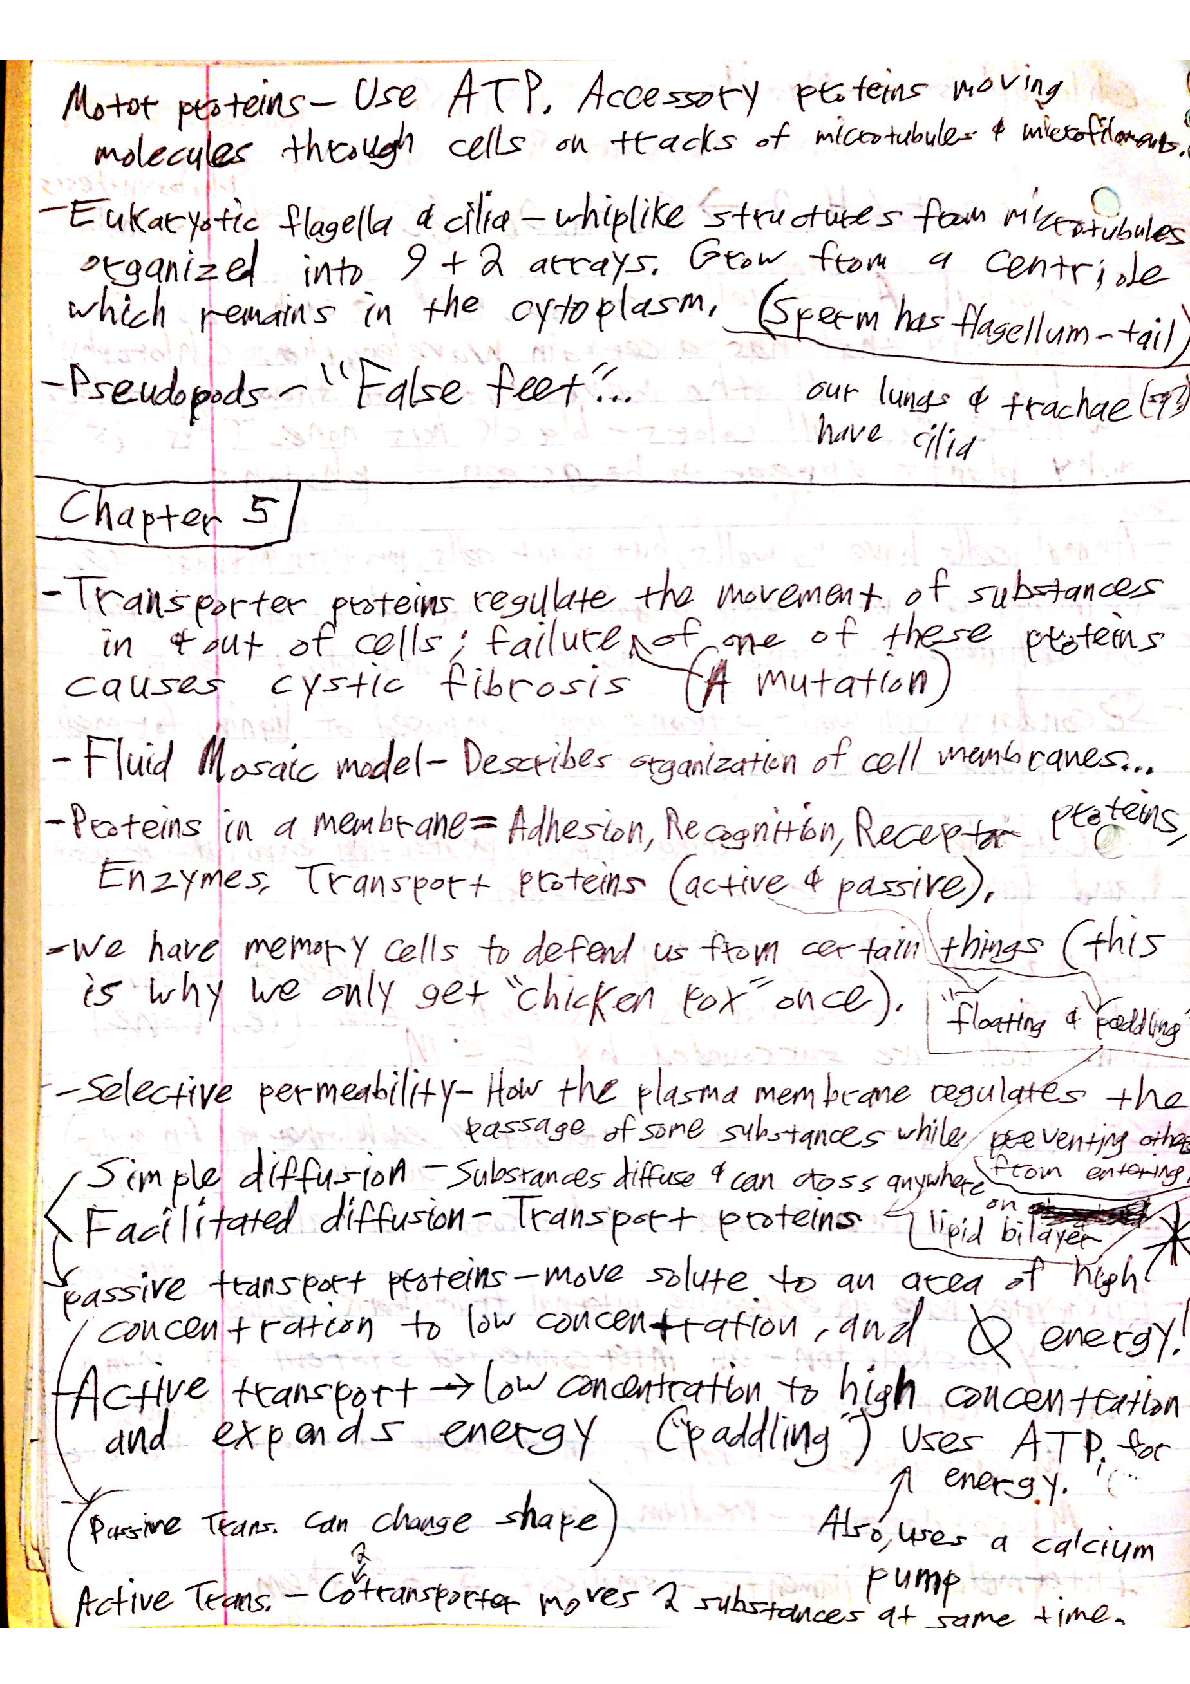 Motor proteins – Use ATP. Accessory proteins moving
molecules through cells on tracks of microtubules & microfilaments.
- Eukaryotic flagella & cilia – whiplike structures from microtubules
organized into 9 + 2 arrays. Grow from a centriole
which remains in the cytoplasm. (Sperm has flagellum – tail)
- Pseudopods – "False feet"...
our lungs & trachae (sp?)
have cilia
Chapter 5
- Transporter proteins regulate the movement of substances
in & out of cells; failure of one of these proteins
causes cystic fibrosis (A mutation)
- Fluid Mosaic model – Describes organization of cell membranes...
- Proteins in a membrane = Adhesion, Recognition, Receptor proteins,
Enzymes, Transport proteins (active & passive).
- We have memory cells to defend us from certain things (this
is why we only get "chicken pox" once).
"floating & paddling"
- Selective permeability – How the plasma membrane regulates the
passage of some substances while preventing others
from entering.
Simple diffusion – Substances diffuse & can cross anywhere
on
lipid bilayer
Facilitated diffusion – Transport proteins
passive transport proteins – move solute to an area of high
concentration to low concentration, and Ø energy!
- Active transport → low concentration to high concentration
and expends energy ("paddling") uses ATP. for
energy.
(Passive Trans. can change shape)
Also, uses a calcium
pump
2
Active Trans. – Cotransporter moves 2 substances at same time.